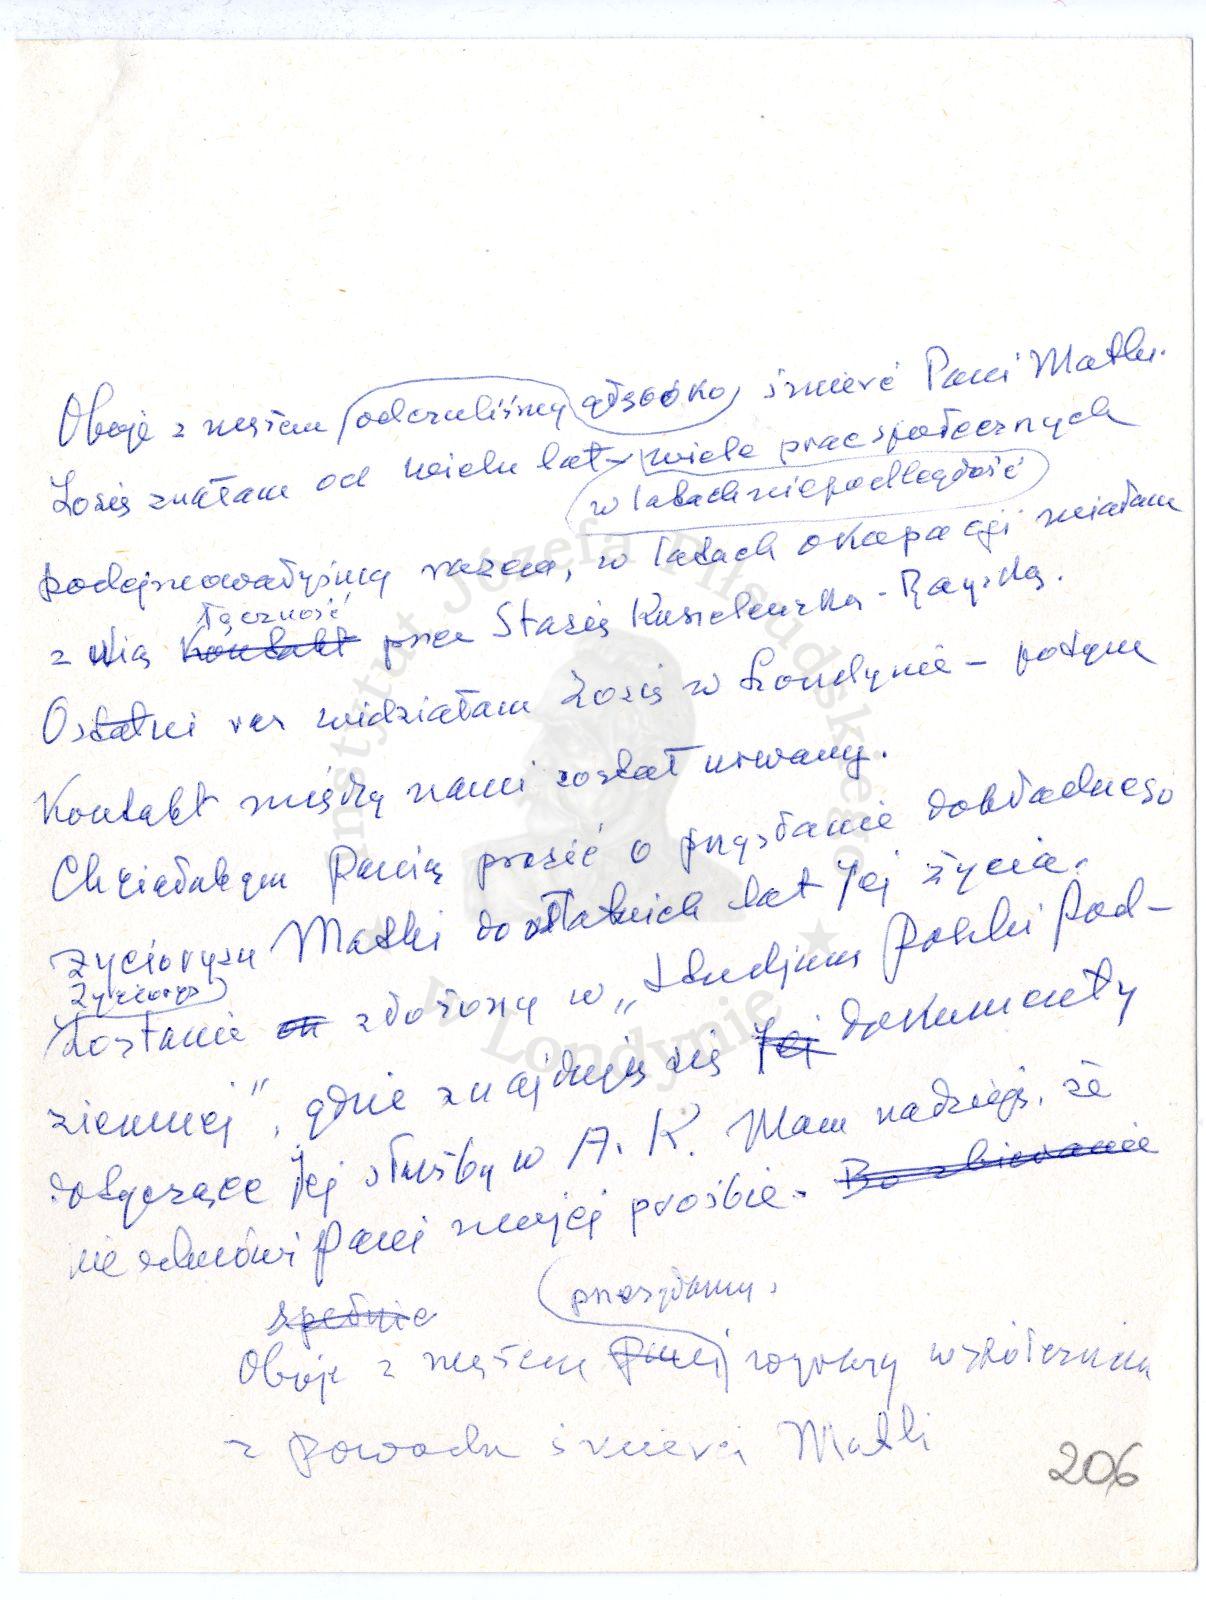 Oboje z mężem odczuliśmy głęboko śmierć Pani Matki.
Zosię znałam od wielu lat, wiele prac społecznych
w latach niepodległość
podejmowałyśmy razem, w latach okupacji miałam
łączność
z Nią kontakt przez Stasię Kusielewską-Rayską.
Ostatni raz widziałam Zosię w Londynie – potym
kontakt między nami został urwany.
Chciałabym Panią prosić o przysłanie dokładnego
życiorysu Matki do ostatnich lat Jej życia.
Życiorys
Zostanie on złożony w „Studjum Polski Pod-
ziemnej", gdzie znajdują się Jej dokumenty
dotyczące Jej służby w A. K. Mam nadzieję, że
nie odmówi Pani mojej prośbie. Bo zbieranie
spełnie
przesyłamy
Oboje z mężem Pani wyrazy współczucia
z powodu śmierci Matki
206
Instytut Józefa Piłsudskiego
w Londynie